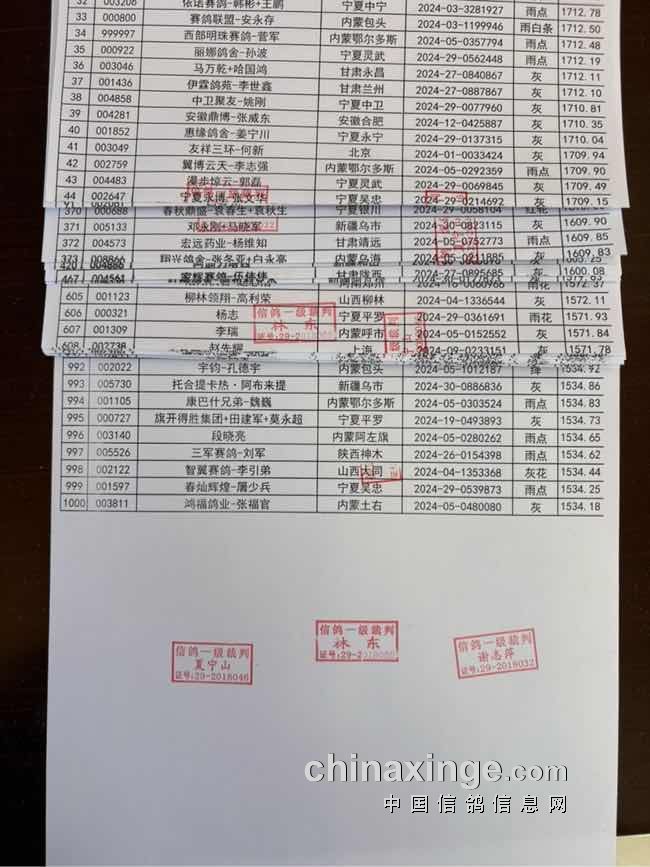 32 003206 依诺赛鸽-韩彬+王鹏 宁夏中宁 2024-03-3281927 雨点 1712.78
33 000800 赛鸽联盟-安永存 内蒙包头 2024-03-1199946 雨白条 1712.50
34 999997 西部明珠赛鸽-菅军 内蒙鄂尔多斯 2024-05-0357794 雨点 1712.48
35 000922 丽娜鸽舍-孙波 宁夏灵武 2024-29-0562448 雨点 1712.19
36 003046 马万乾+哈国鸿 甘肃永昌 2024-27-0840867 灰 1712.11
37 001436 伊霖鸽苑-李世鑫 甘肃兰州 2024-27-0887867 灰 1712.10
38 004858 中卫聚友-姚刚 宁夏中卫 2024-29-0077960 灰 1710.81
39 004281 安徽鼎博-张威东 安徽合肥 2024-12-0425887 灰 1710.35
40 001852 惠缘鸽舍-姜宁川 宁夏永宁 2024-29-0137315 灰 1710.04
41 003049 友祥三环-何新 北京 2024-01-0033424 灰 1709.94
42 002759 翼博云天-李志强 内蒙鄂尔多斯 2024-05-0292359 雨点 1709.90
43 004483 漫步惊云-郭磊 宁夏灵武 2024-29-0069845 灰 1709.49
44 002647 宁夏永博-张文华 宁夏吴忠 2024-29-0214692 灰 1709.15
370 000688 春秋鼎盛-袁春生+袁秋生 宁夏银川 2024-29-0058104 红轮 1609.90
371 005133 邓永刚+马晓军 新疆乌市 2024-30-0823115 灰 1609.90
372 004573 宏远药业-杨维知 甘肃靖远 2024-05-0752773 雨点 1609.85
373 008866 翔兴鸽舍-张冬亚+白永亮 内蒙乌海 2024-05-0211885 灰 1609.83
467 004561 甘肃陇西 2024-27-0895685 灰 1600.08
605 001123 柳林领翔-高利荣 山西柳林 2024-04-1336544 灰 1572.11
606 000321 杨志 宁夏平罗 2024-29-0361691 雨花 1571.93
607 001309 李瑞 内蒙呼市 2024-05-0152552 灰 1571.84
608 002738 赵先耀 上海 2024-09-0233151 灰 1571.78
信鸽一级裁判
林东
992 002022 宇钧-孔德宇 内蒙包头 2024-05-1012187 绛 1534.92
993 005730 托合提卡热·阿布来提 新疆乌市 2024-30-0886836 灰 1534.86
994 001105 康巴什兄弟-魏巍 内蒙鄂尔多斯 2024-05-0303524 雨点 1534.83
995 000727 旗开得胜集团+田建军+莫永超 宁夏平罗 2024-19-0493893 灰 1534.73
996 003140 段晓亮 内蒙阿左旗 2024-05-0280262 雨点 1534.65
997 005526 三军赛鸽-刘军 陕西神木 2024-26-0154398 雨点 1534.62
998 002122 智翼赛鸽-李引弟 山西大同 2024-04-1353368 灰花 1534.44
999 001597 春灿辉煌-屠少兵 宁夏吴忠 2024-29-0539873 雨点 1534.25
1000 003811 鸿福鸽业-张福官 内蒙土右 2024-05-0480080 灰 1534.18
信鸽一级裁判
夏宁山
证号:29-2018046
信鸽一级裁判
林东
信鸽一级裁判
谢志萍
证号:29-2018032
chinaxinge.com
中国信鸽信息网